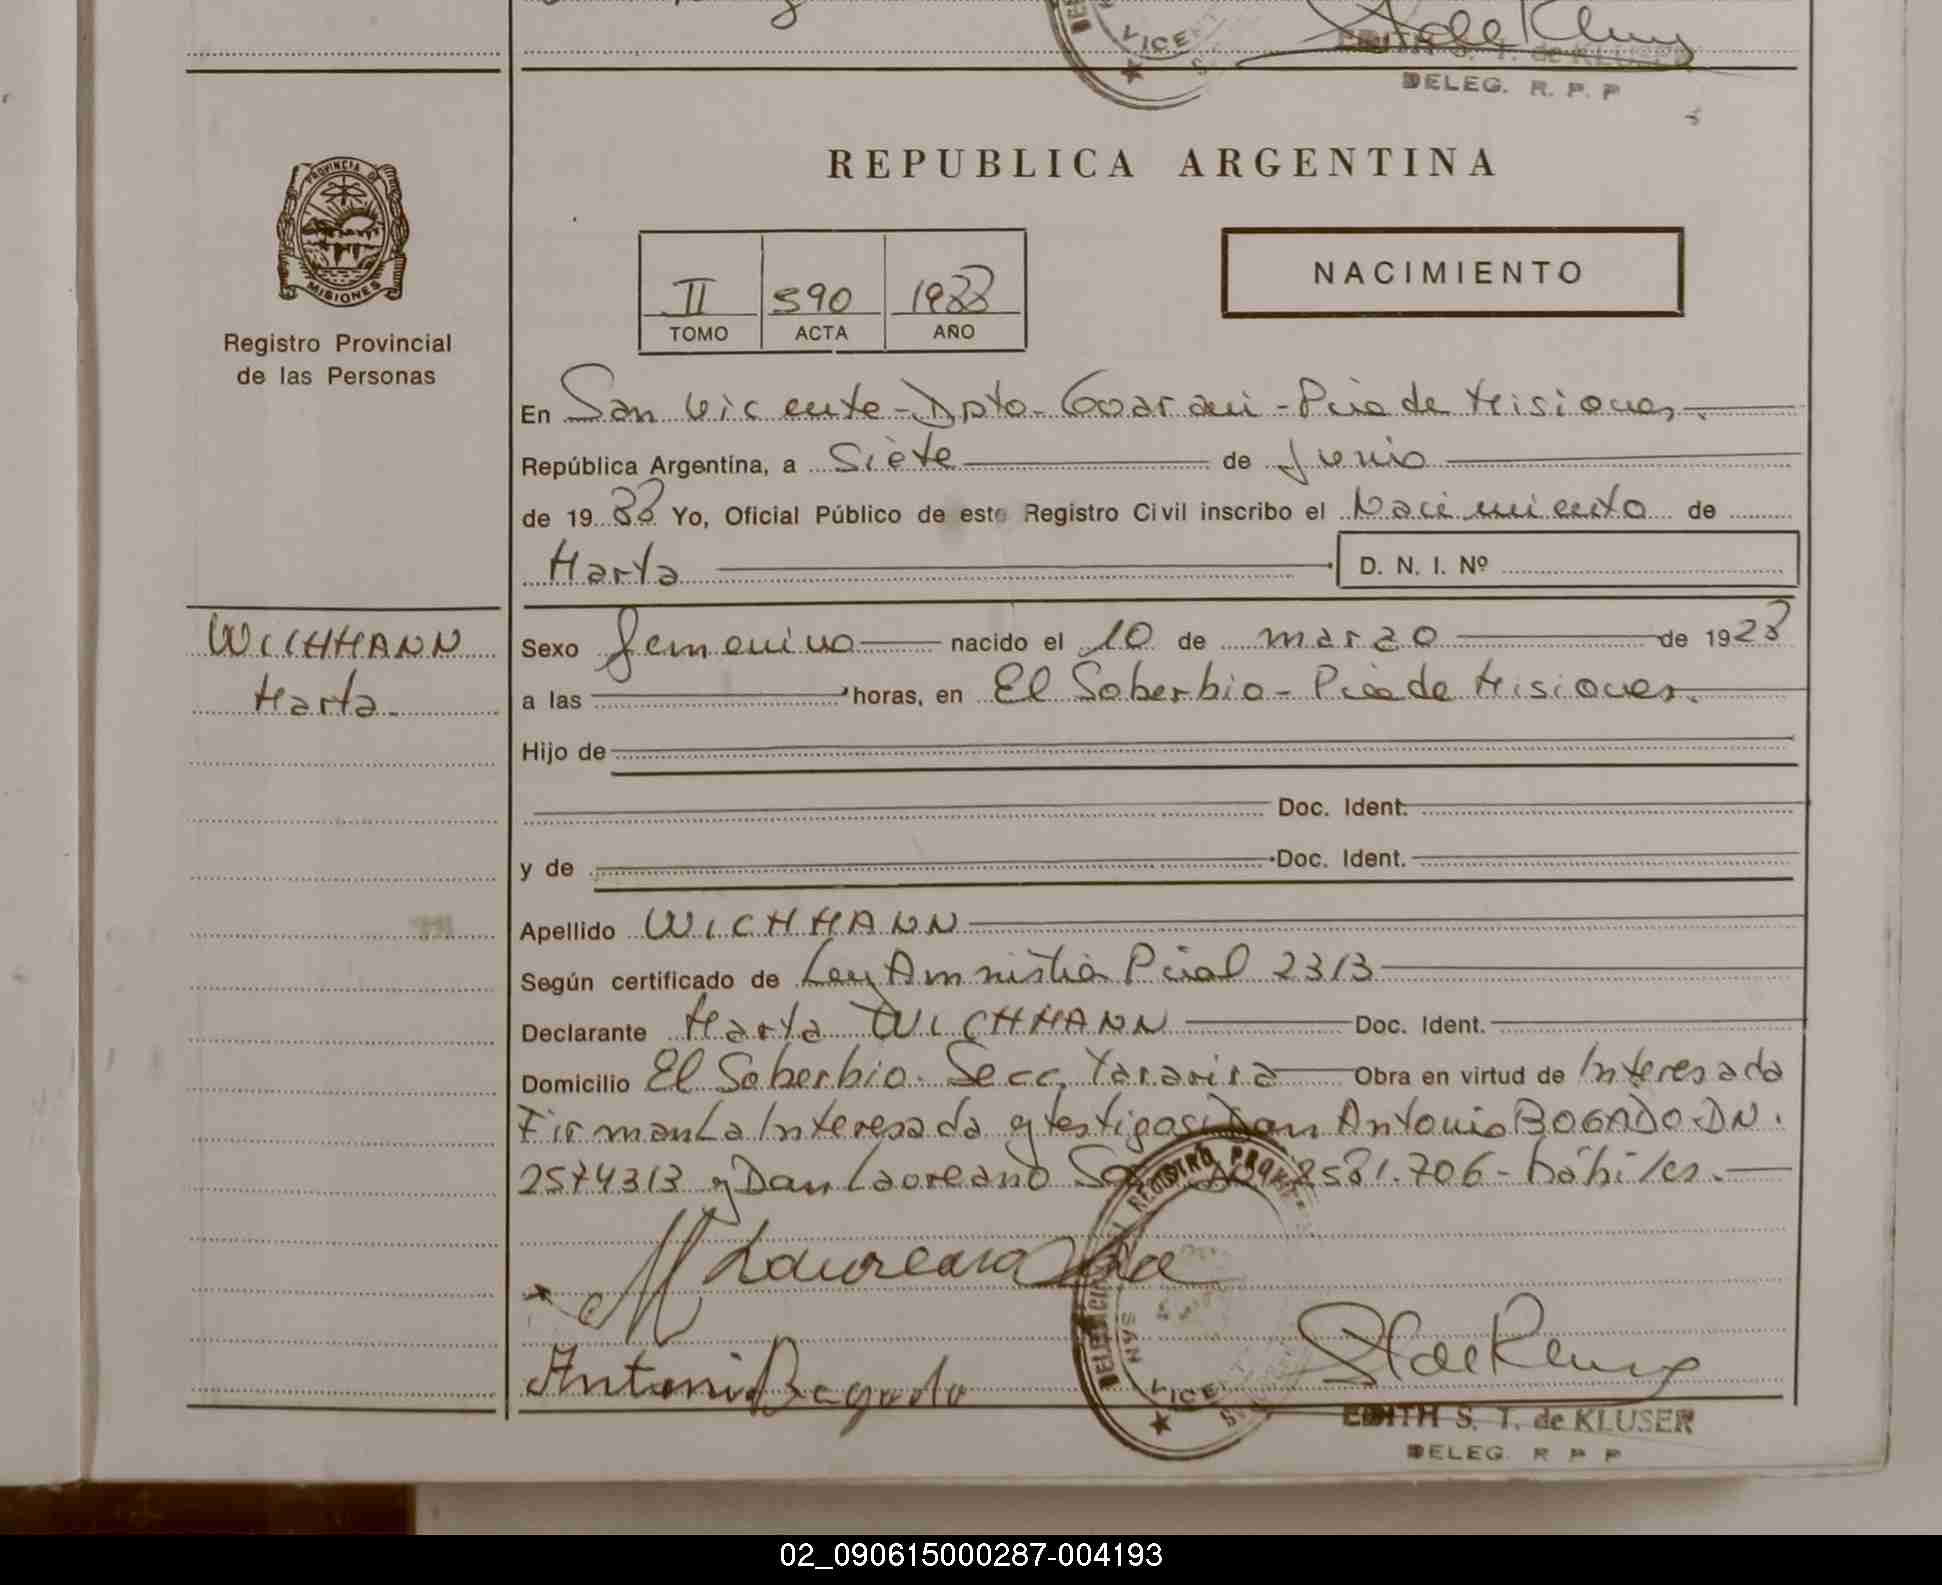 VICE
EDITH S. T. de KLUSER
DELEG. R. P. P
PROVINCIA DE
MISIONES
Registro Provincial
de las Personas
REPUBLICA ARGENTINA
NACIMIENTO
II 590 1988
TOMO ACTA AÑO
En San Vicente - Dpto - Guarani - Pcia de Misiones.
República Argentina, a Siete de Junio
de 1988 Yo, Oficial Público de este Registro Civil inscribo el Nacimiento de
Marta D. N. I. Nº
WICHMANN
Marta.
Sexo femenino nacido el 10 de marzo de 1928
a las horas, en El Soberbio - Pcia de Misiones.
Hijo de
Doc. Ident.
y de Doc. Ident.
Apellido WICHMANN
Según certificado de Ley Amnistia Pcial 2313
Declarante Marta WICHMANN Doc. Ident.
Domicilio El Soberbio - Secc. Obra en virtud de Interesada
Firman La Interesada y testigos Don Antonio BOGADO - DN.
2574313 y Don Laoreano 2581.706 - hábiles.
Laureano
Antonio Bogado
DELEGACION DEL REGISTRO PROVINCIAL
SAN VICENTE
EDITH S. T. de KLUSER
DELEG. R P P
02_090615000287-004193